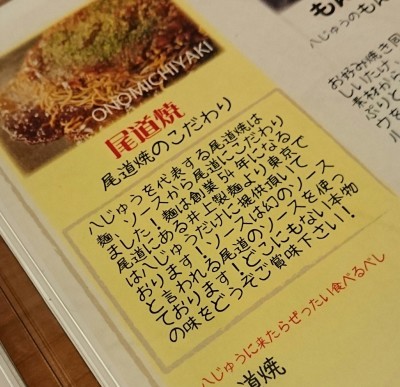 ONOMICHIYAKI
尾道焼
尾道焼のこだわり
八じゅうを代表する尾道焼は
麺、ソースから尾道にこだわり
ました！麺は創業54年になる
尾道にある井上製麺より東京で
は八じゅうだけに提供頂いて
おります！ソースは幻のソース
と言われる尾道のソースを使っ
ております！どこにもない本物
の味をどうぞご賞味下さい！
八じゅうに来たらぜったい食べるべし
道焼
もん
八じゅうのもん
お好み焼き同
しいたけ、
素材から
ぷりと
ウを
ル